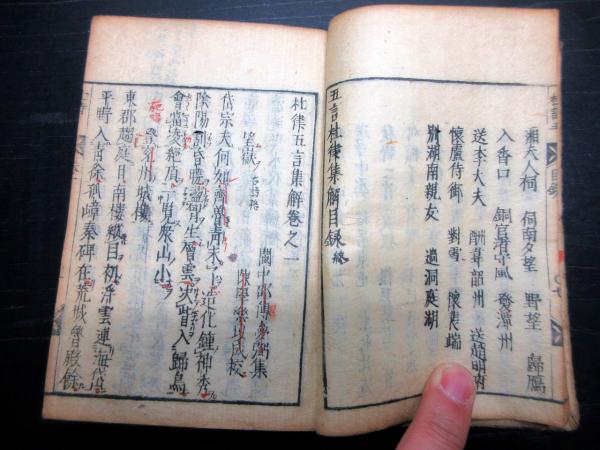 湘夫人祠 祠南夕望 野望 歸鴈
入喬口 銅官渚守風 發潭州
送李大夫 酬韋韶州 送趙明府
懷盧侍御 對雪
別湖南親友 過洞庭湖
五言杜律集解目録終
杜律五言集解卷之一
閩中邵傅夢弼集
陳學樂以成校
望嶽 古詩格
岱宗夫何如齊魯青未了造化鍾神秀
陰陽割昏曉盪胸生曾雲決眥入歸鳥
會當凌絕頂一覽衆山小
登兖州城樓
東郡趨庭日南樓縱目初浮雲連海岱
平野入青徐孤嶂秦碑在荒城魯殿餘